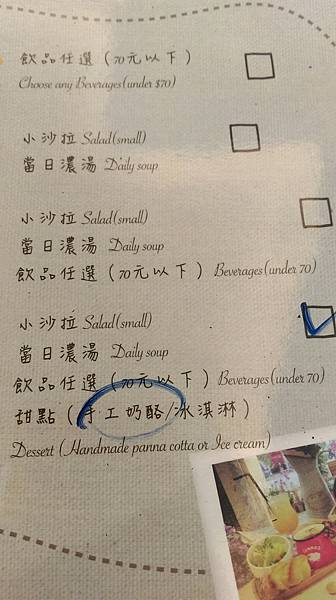 飲品任選(70元以下)
Choose any Beverages(under $70)
小沙拉 Salad(small)
當日濃湯 Daily soup
小沙拉 Salad(small)
當日濃湯 Daily soup
飲品任選(70元以下) Beverages(under 70)
小沙拉 Salad(small)
當日濃湯 Daily soup
飲品任選(70元以下) Beverages(under 70)
甜點(手工奶酪/冰淇淋)
Dessert (Handmade panna cotta or Ice cream)